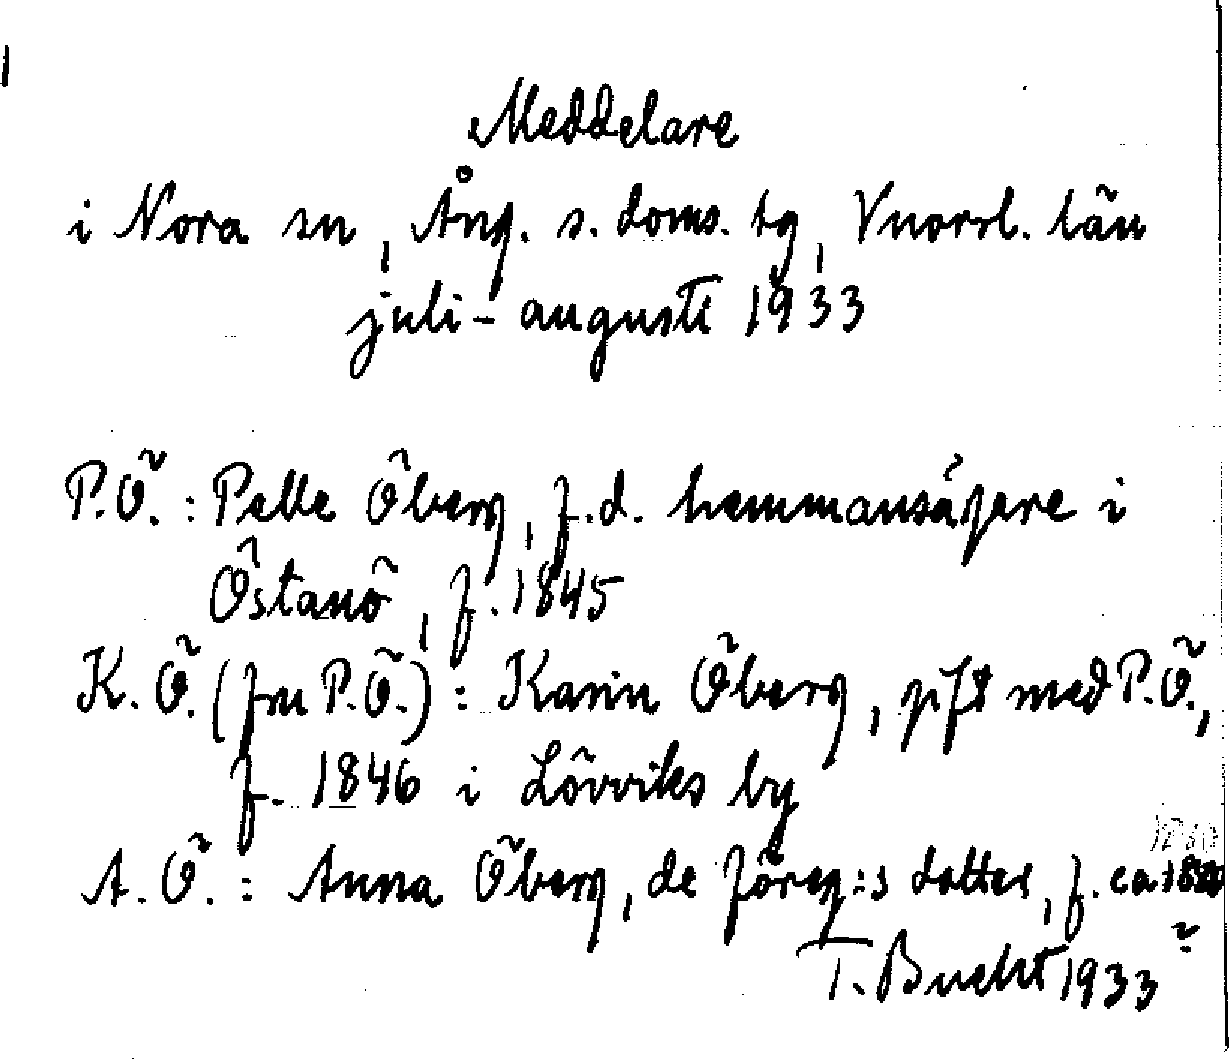 Meddelare
i Nora sn, Ång. s. doms. tg, Vnorrl. län
juli - augusti 1933
P.Ö. : Pelle Öberg, f.d. hemmansägare i
Östanö, f. 1845
K.Ö. (fru P.Ö.) : Karin Öberg, gift med P.Ö.,
f. 1846 i Lövviks by
A.Ö. : Anna Öberg, de föreg:s dotter, f. ca 1880
T. Bucht 1933